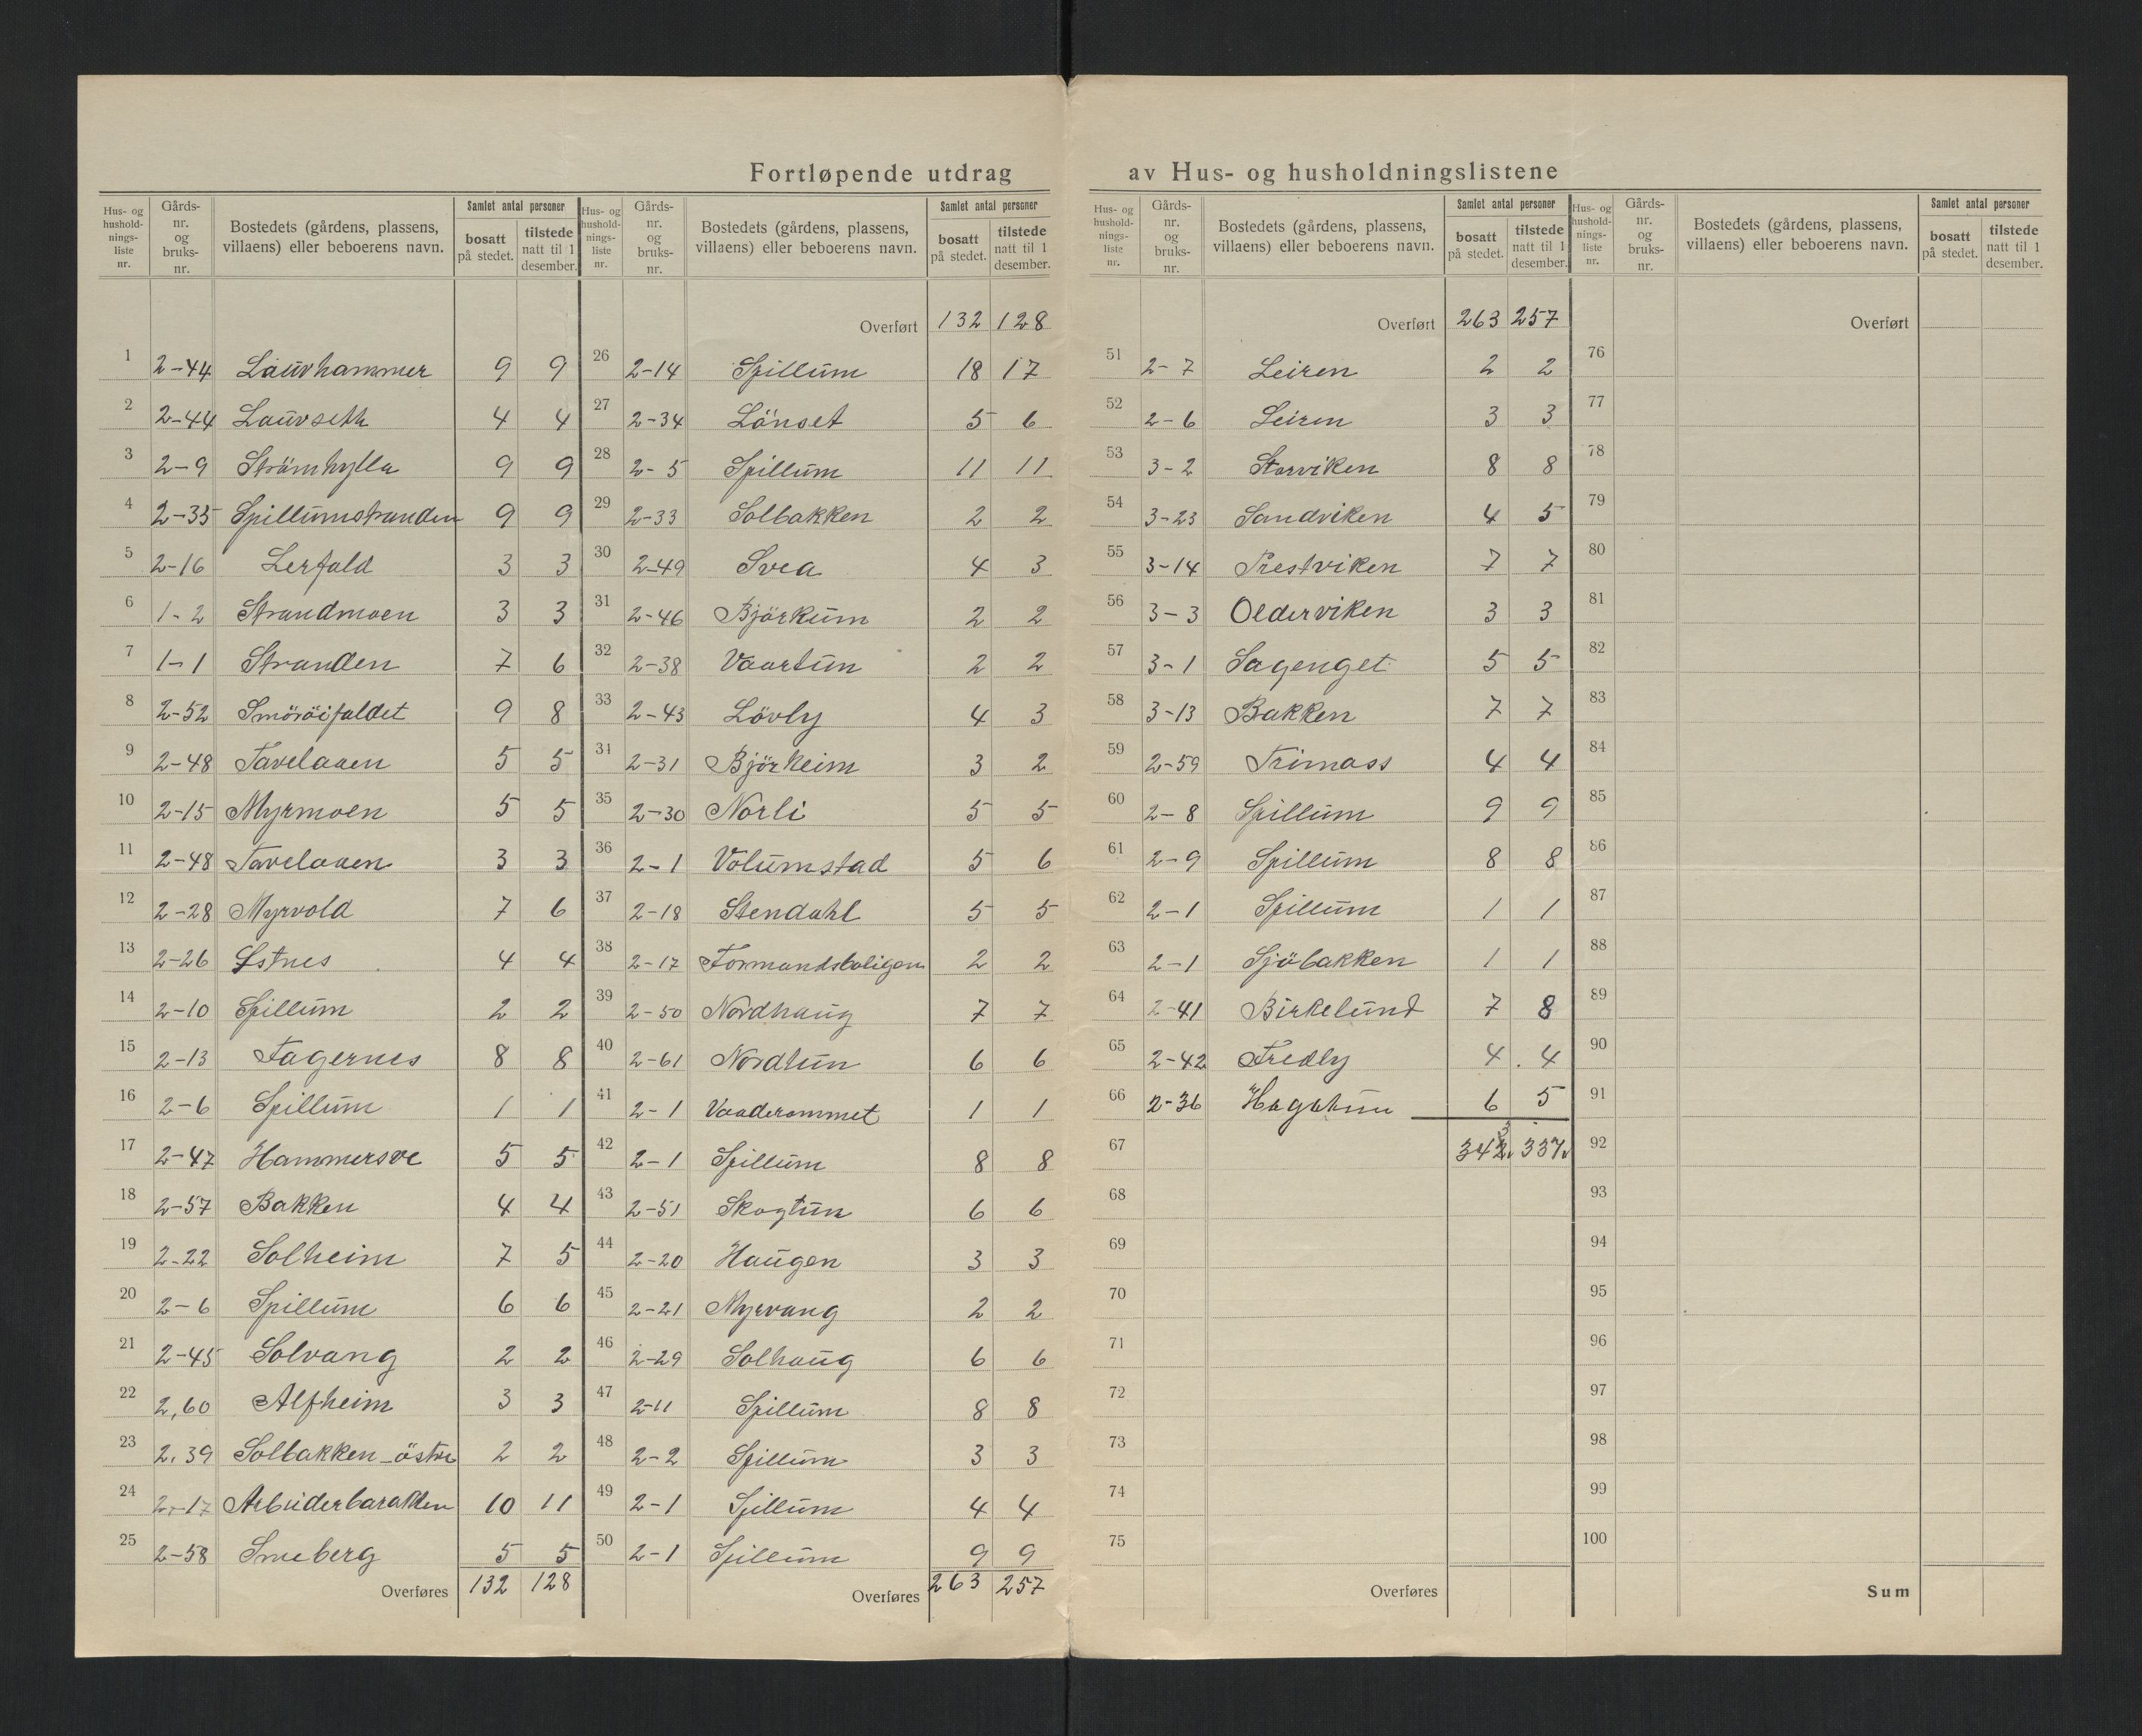 Fortløpende utdrag av Hus- og husholdningslistene
Hus- og hushold-nings-liste nr. Gårds-nr. og bruks-nr. Bostedets (gårdens, plassens, villaens) eller beboerens navn. Samlet antal personer bosatt på stedet. tilstede natt til 1 desember.
1 2-44 Lauvhammer 9 9
2 2-44 Lauvseth 4 4
3 2-9 Strömhylla 9 9
4 2-35 Spillumstranden 9 9
5 2-16 Lerfald 3 3
6 1-2 Strandmoen 3 3
7 1-1 Stranden 7 6
8 2-52 Smöröifaldet 9 8
9 2-48 Tavelaaen 5 5
10 2-15 Myrmoen 5 5
11 2-48 Tavelaaen 3 3
12 2-28 Myrvold 7 6
13 2-26 Estnes 4 4
14 2-10 Spillum 2 2
15 2-13 Fagernes 8 8
16 2-6 Spillum 1 1
17 2-47 Hammersve 5 5
18 2-57 Bakken 4 4
19 2-22 Solheim 7 5
20 2-6 Spillum 6 6
21 2-45 Solvang 2 2
22 2,60 Alfheim 3 3
23 2.39 Solbakken-östre 2 2
24 2-17 Arbeiderbarakken 10 11
25 2-58 Sneberg 5 5
Overføres 132 128
Hus- og hushold-nings-liste nr. Gårds-nr. og bruks-nr. Bostedets (gårdens, plassens, villaens) eller beboerens navn. Samlet antal personer bosatt på stedet. tilstede natt til 1 desember.
Overført 132 128
26 2-14 Spillum 18 17
27 2-34 Lönset 5 6
28 2-5 Spillum 11 11
29 2-33 Solbakken 2 2
30 2-49 Svea 4 3
31 2-46 Björkum 2 2
32 2-38 Vaartun 2 2
33 2-43 Lövly 4 3
34 2-31 Björkeim 3 2
35 2-30 Norli 5 5
36 2-1 Volumstad 5 6
37 2-18 Stendahl 5 5
38 2-17 Formandsboligen 2 2
39 2-50 Nordhaug 7 7
40 2-61 Nordtun 6 6
41 2-1 Vaaderommet 1 1
42 2-1 Spillum 8 8
43 2-51 Skogtun 6 6
44 2-20 Haugen 3 3
45 2-21 Myrvang 2 2
46 2-29 Solhaug 6 6
47 2-11 Spillum 8 8
48 2-2 Spillum 3 3
49 2-1 Spillum 4 4
50 2-1 Spillum 9 9
Overføres 263 257
Hus- og hushold-nings-liste nr. Gårds-nr. og bruks-nr. Bostedets (gårdens, plassens, villaens) eller beboerens navn. Samlet antal personer bosatt på stedet. tilstede natt til 1 desember.
Overført 263 257
51 2-7 Leiren 2 2
52 2-6 Leiren 3 3
53 3-2 Storviken 8 8
54 3-23 Sandviken 4 5
55 3-14 Prestviken 7 7
56 3-3 Olderviken 3 3
57 3-1 Sagenget 5 5
58 3-13 Bakken 7 7
59 2-59 Trimass 4 4
60 2-8 Spillum 9 9
61 2-9 Spillum 8 8
62 2-1 Spillum 1 1
63 2-1 Sjöbakken 1 1
64 2-41 Birkelund 7 8
65 2-42 Fredly 4 4
66 2-36 Hagatun 6 5
67 342 337
68
69
70
71
72
73
74
75
Overføres
Hus- og hushold-nings-liste nr. Gårds-nr. og bruks-nr. Bostedets (gårdens, plassens, villaens) eller beboerens navn. Samlet antal personer bosatt på stedet. tilstede natt til 1 desember.
Overført
76
77
78
79
80
81
82
83
84
85
86
87
88
89
90
91
92
93
94
95
96
97
98
99
100
Sum